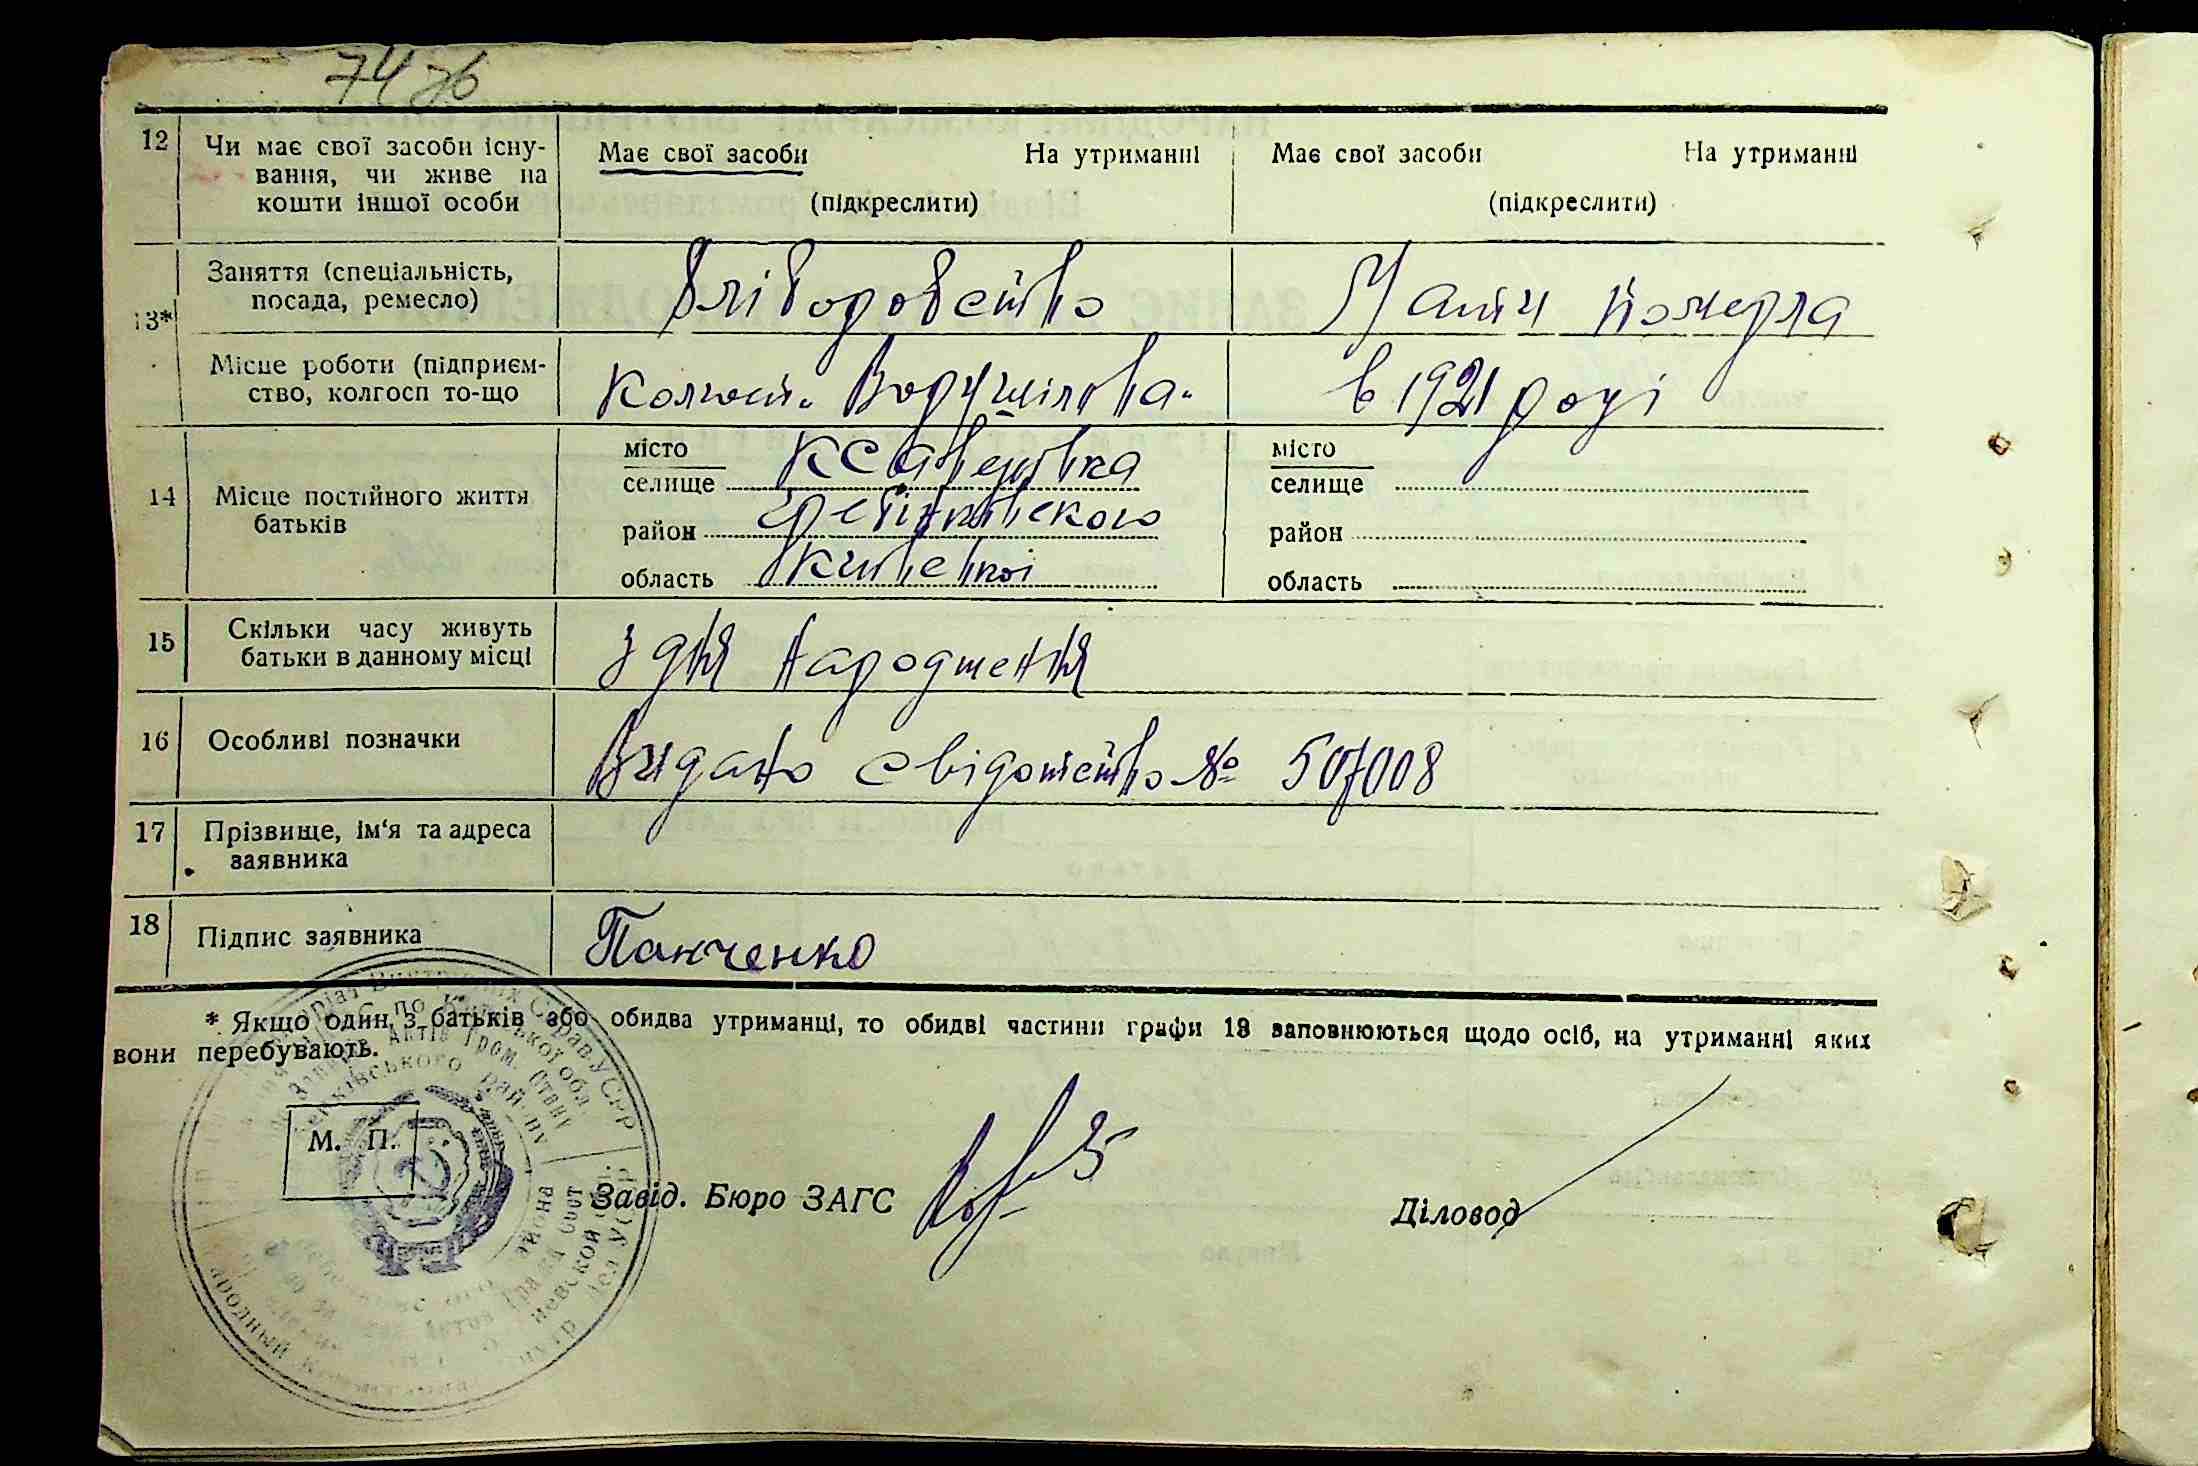 74 зв
12 Чи має свої засоби існу- Має свої засоби На утриманні Має свої засоби На утриманні
вання, чи живе на
кошти іншої особи (підкреслити) (підкреслити)
13* Заняття (спеціальність, Хліборобство Мати померла
посада, ремесло)
Місце роботи (підприєм- Колгосп. Ворошілова. в 1921 році
ство, колгосп то-що
14 Місце постійного життя батьків
місто Ксаверівка місто
селище селище
район Гребінківского район
область Київської область
15 Скільки часу живуть з дня народження
батьки в данному місці
16 Особливі позначки Видано свідотство № 507008
17 Прізвище, ім'я та адреса
заявника
18 Підпис заявника Панченко
* Якщо один з батьків або обидва утриманці, то обидві частини графи 13 заповнюються щодо осіб, на утриманні яких
вони перебувають.
М. П.
Завід. Бюро ЗАГС Діловод